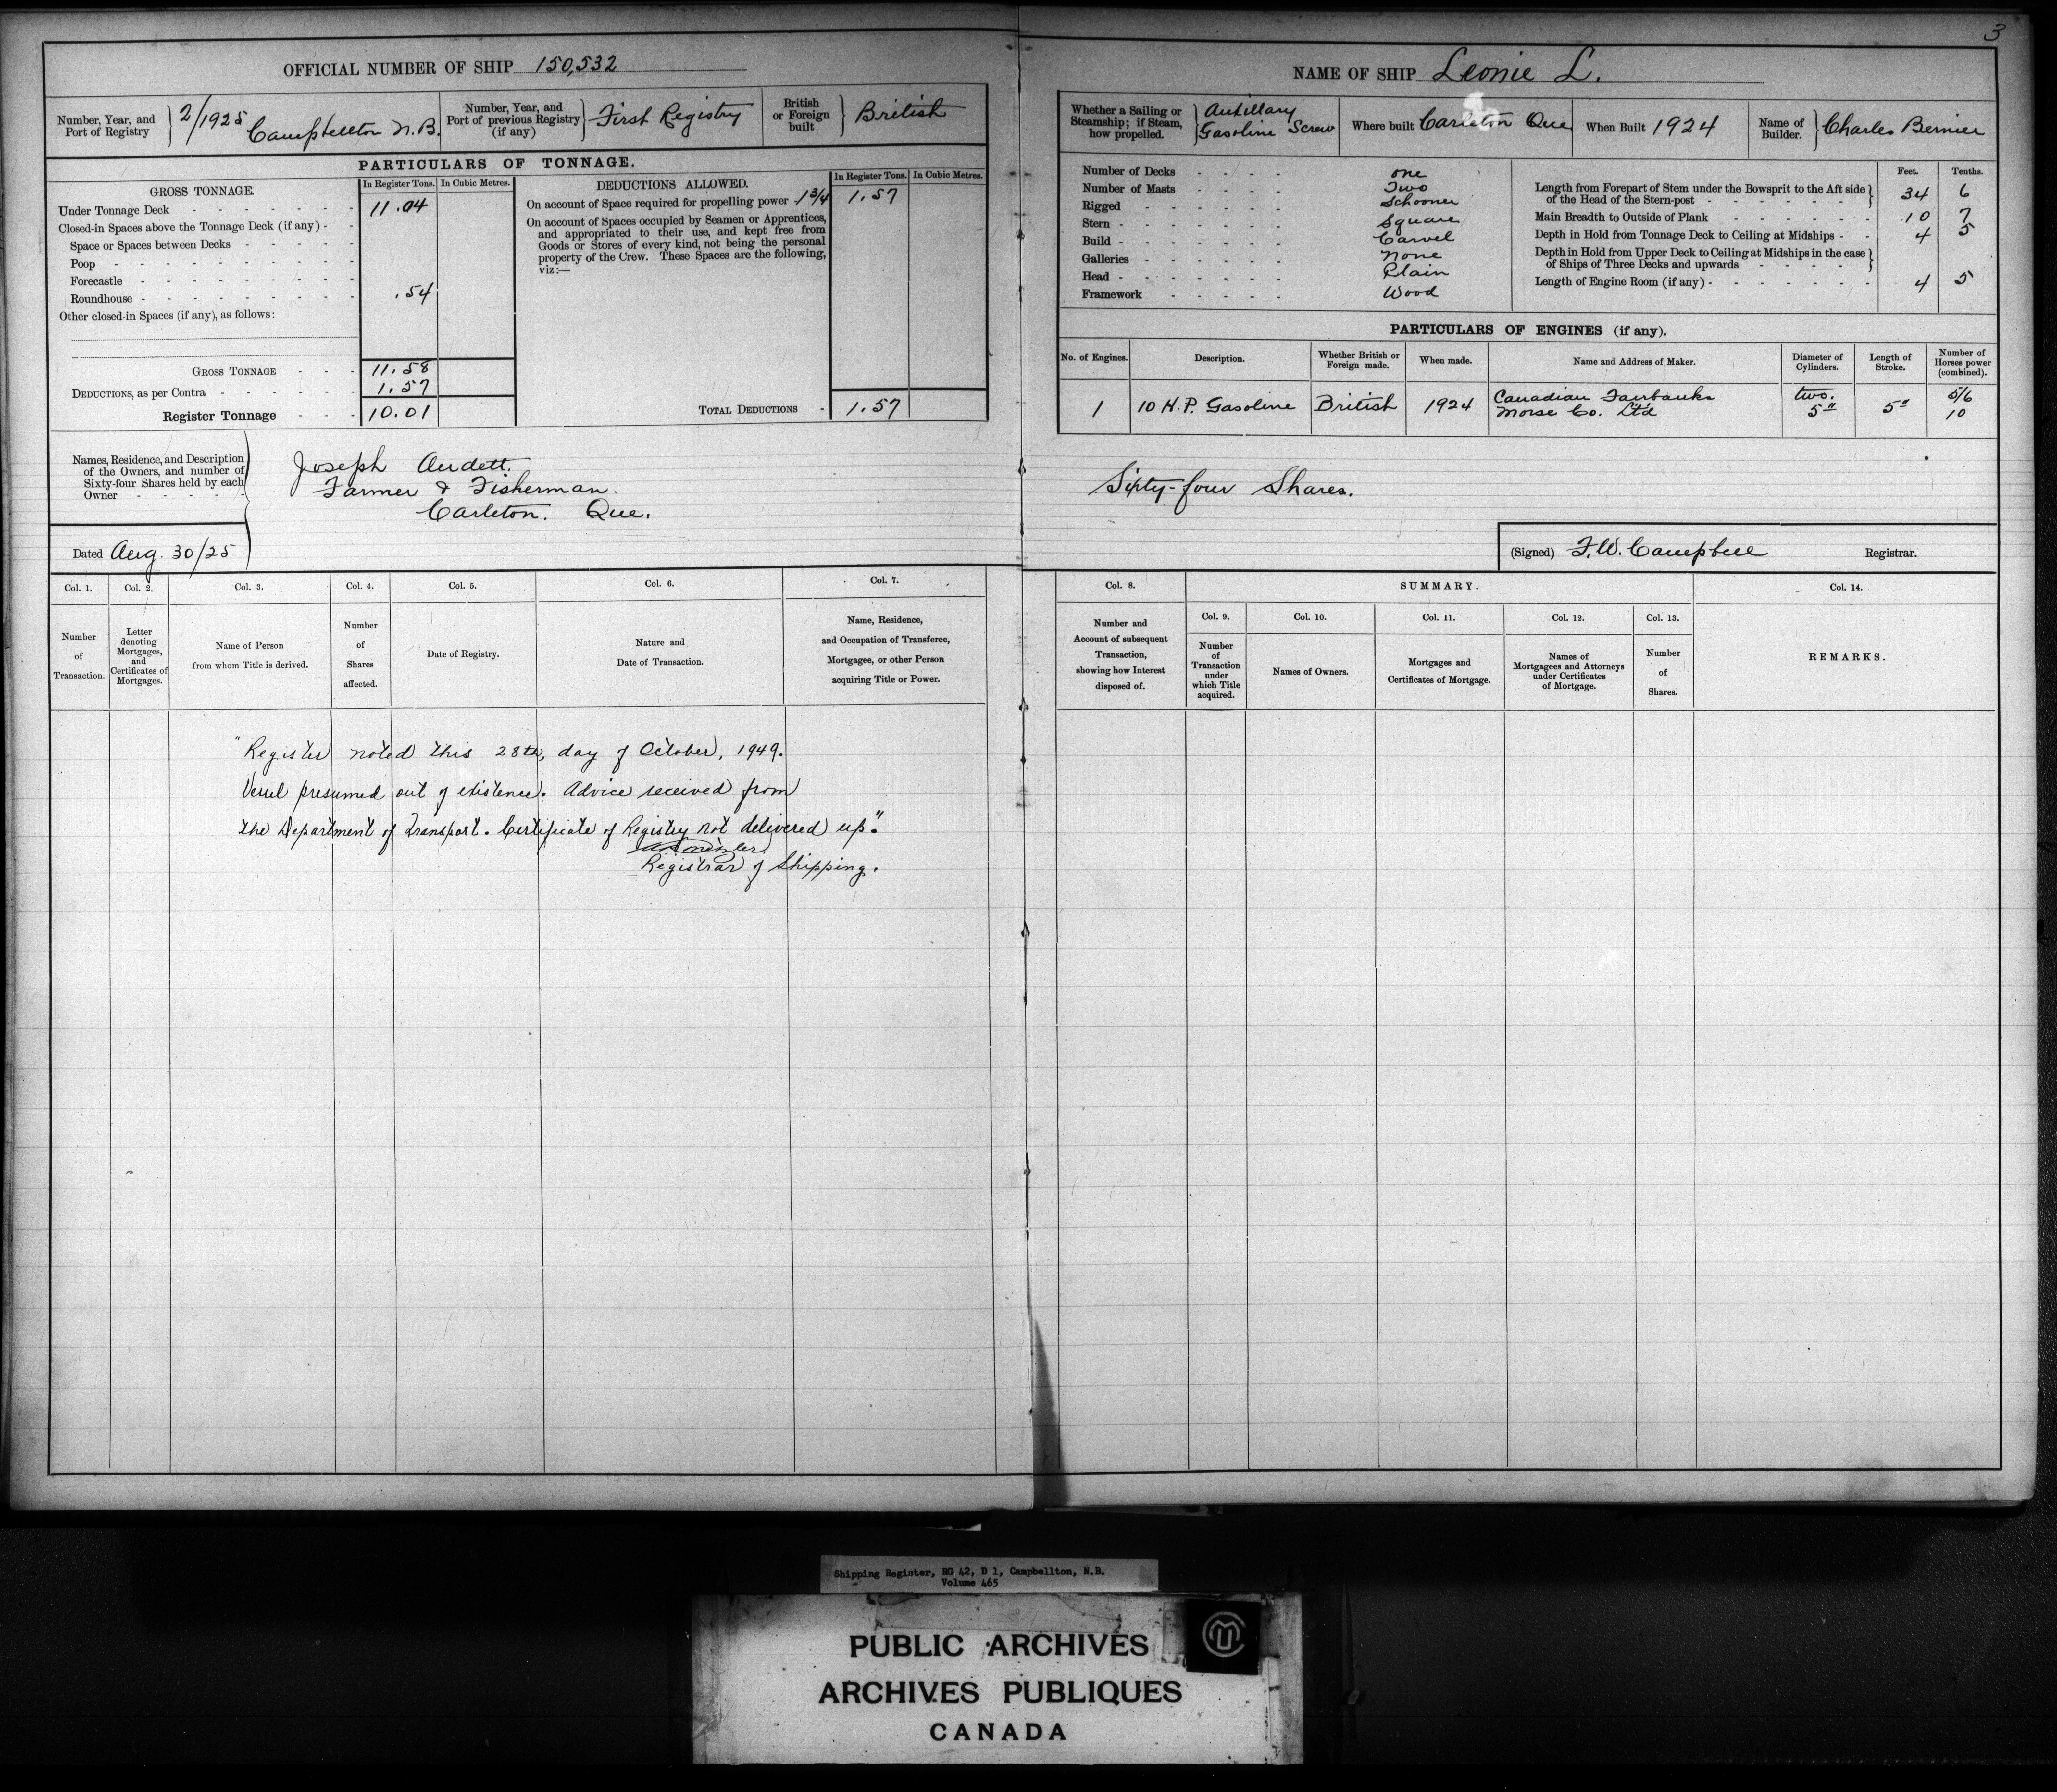 3
OFFICIAL NUMBER OF SHIP 150,532
Number, Year, and Port of Registry 2/1925 Campbellton N.B.
Number, Year, and Port of previous Registry (if any) First Registry
British or Foreign built British
PARTICULARS OF TONNAGE.
GROSS TONNAGE. In Register Tons. In Cubic Metres.
Under Tonnage Deck 11.04
Closed-in Spaces above the Tonnage Deck (if any)
Space or Spaces between Decks
Poop
Forecastle
Roundhouse .54
Other closed-in Spaces (if any), as follows:
GROSS TONNAGE 11.58
DEDUCTIONS, as per Contra 1.57
Register Tonnage 10.01
DEDUCTIONS ALLOWED. In Register Tons. In Cubic Metres.
On account of Space required for propelling power 1 3/4 1.57
On account of Spaces occupied by Seamen or Apprentices,
and appropriated to their use, and kept free from
Goods or Stores of every kind, not being the personal
property of the Crew. These Spaces are the following,
viz:—
TOTAL DEDUCTIONS 1.57
Names, Residence, and Description
of the Owners, and number of
Sixty-four Shares held by each
Owner
Joseph Audett.
Farmer & Fisherman.
Carleton. Que.
Dated Aug. 30/25
NAME OF SHIP Leonie L.
Whether a Sailing or Steamship; if Steam, how propelled. Auxillary Gasoline Screw
Where built Carleton Que
When Built 1924
Name of Builder. Charles Bernier
Number of Decks one
Number of Masts Two
Rigged Schooner
Stern Square
Build Carvel
Galleries None
Head Plain
Framework Wood
Feet. Tenths.
Length from Forepart of Stem under the Bowsprit to the Aft side of the Head of the Stern-post 34 6
Main Breadth to Outside of Plank 10 7
Depth in Hold from Tonnage Deck to Ceiling at Midships 4 5
Depth in Hold from Upper Deck to Ceiling at Midships in the case of Ships of Three Decks and upwards
Length of Engine Room (if any) 4 5
PARTICULARS OF ENGINES (if any).
No. of Engines. Description. Whether British or Foreign made. When made. Name and Address of Maker. Diameter of Cylinders. Length of Stroke. Number of Horses power (combined).
1 10 H.P. Gasoline British 1924 Canadian Fairbanks Morse Co. Ltd two. 5" 5" 5/6 10
Sixty-four Shares.
(Signed) F.W. Campbell Registrar.
Col. 1. Col. 2. Col. 3. Col. 4. Col. 5. Col. 6. Col. 7.
Number of Transaction.
Letter denoting Mortgages, and Certificates of Mortgages.
Name of Person from whom Title is derived.
Number of Shares affected.
Date of Registry.
Nature and Date of Transaction.
Name, Residence, and Occupation of Transferee, Mortgagee, or other Person acquiring Title or Power.
Col. 8. SUMMARY. Col. 14.
Number and Account of subsequent Transaction, showing how Interest disposed of.
Col. 9. Col. 10. Col. 11. Col. 12. Col. 13.
Number of Transaction under which Title acquired.
Names of Owners.
Mortgages and Certificates of Mortgage.
Names of Mortgagees and Attorneys under Certificates of Mortgage.
Number of Shares.
REMARKS.
"Register noted this 28th, day of October, 1949.
Vessel presumed out of existence. Advice received from
the Department of Transport. Certificate of Registry not delivered up."
Registrar of Shipping.
Shipping Register, RG 42, D 1, Campbellton, N.B.
Volume 465
PUBLIC ARCHIVES
ARCHIVES PUBLIQUES
CANADA